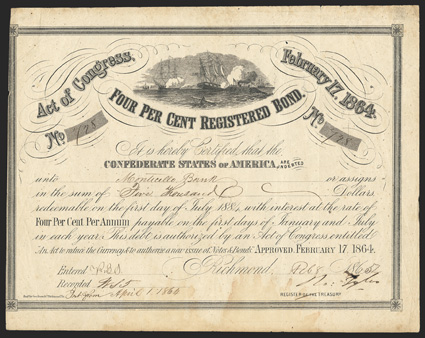 Act of Congress,
February 17, 1864.
FOUR PER CENT REGISTERED BOND.
No 728
No 728
It is hereby Certified, that the
CONFEDERATE STATES OF AMERICA, ARE INDEBTED
unto Monticello Bank or assigns
in the sum of Five Thousand Dollars
redeemable on the first day of July 188 with interest at the rate of
Four Per Cent. Per Annum payable on the first days of January and July
in each year. This debt is authorized by an Act of Congress entitled
"An Act to reduce the Currency, & to authorize a new issue of Notes & Bonds" APPROVED, FEBRUARY 17, 1864.
Entered Richmond, 186
Recorded
REGISTER OF THE TREASURY.
April 1 1865